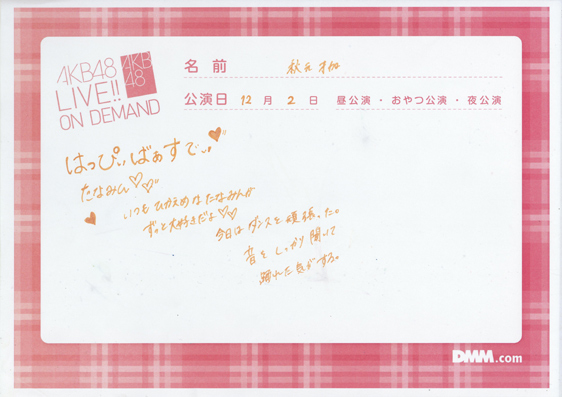 AKB48
LIVE!!
ON DEMAND
AKB
48
名前 秋元才加
公演日 12月2日 昼公演・おやつ公演・夜公演
はっぴぃばぁすでぃ♥
たなみん♡♡
いつもひかえめなたなみんが
ずっと大好きだよ♡♡
今日はダンスを頑張った。
音をしっかり聞いて
踊れた気がする。
DMM.com